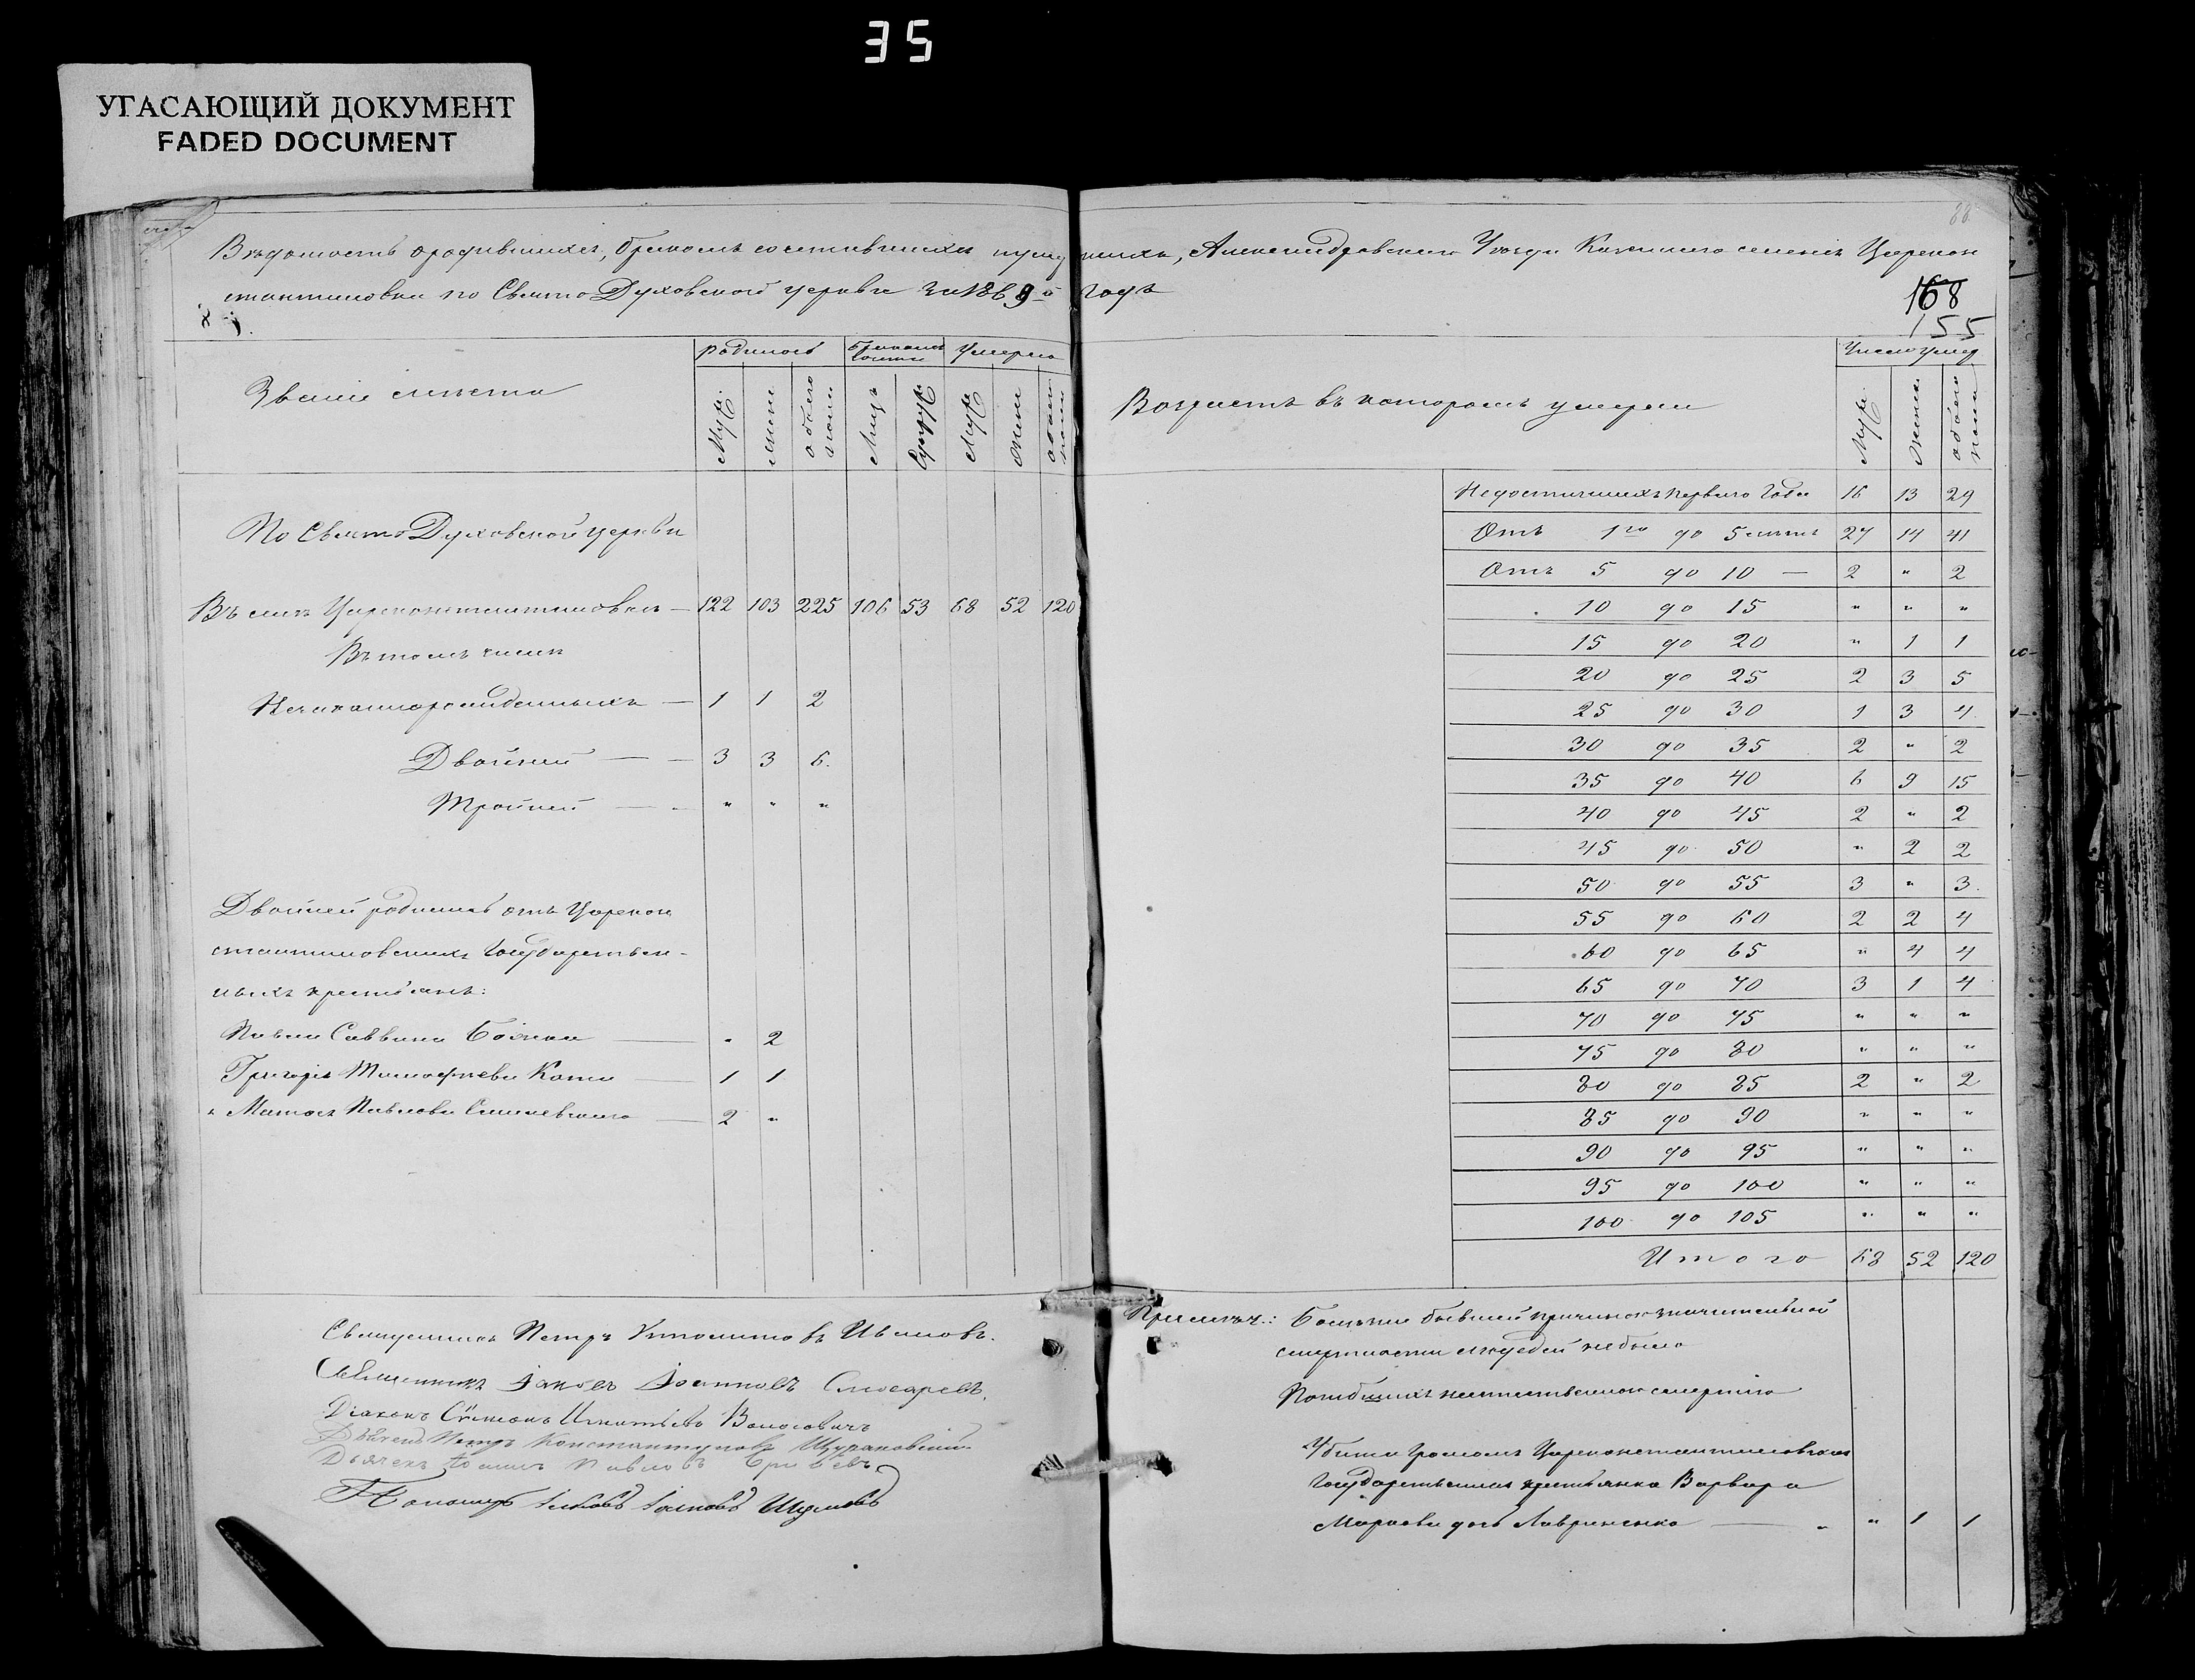 35
УГАСАЮЩИЙ ДОКУМЕНТ
FADED DOCUMENT
Вѣдомость о родившихся, бракомъ сочетавшихся и умершихъ, Александровскаго Уѣзда Казеннаго селенія Царекон
стантиновки по Свято Духовской церкви за 1869й годъ
168
155
Званіе мѣста
родилось
Бракомъ
Умерло
Муж.
женс
обоего пола
Лицъ
Супруж
Муж
Жен
обоего пола
Возрастъ въ которомъ умерли
Число умер
Муж.
Женск
обоего пола
По Свято Духовской церкви
Въ селѣ Цареконстантиновкѣ — 122 103 225 106 53 68 52 120
Въ томъ числѣ
Незаконнорожденныхъ — 1 1 2
Двойней — — 3 3 6.
Тройней — „ „ „
Двойней родилось отъ Царекон
стантиновскихъ Государствен-
ныхъ крестьянъ:
Павла Саввина — „ 2
Григорія Тимофѣева — 1 1
Павлова — 2 „
Недостигшихъ перваго Года 16 13 29
Отъ 1го до 5 лѣтъ 27 14 41
Отъ 5 до 10 — 2 „ 2
10 до 15 „ „ „
15 до 20 „ 1 1
20 до 25 2 3 5
25 до 30 1 3 4
30 до 35 2 „ 2
35 до 40 6 9 15
40 до 45 2 „ 2
45 до 50 „ 2 2
50 до 55 3 „ 3.
55 до 60 2 2 4
60 до 65 „ 4 4
65 до 70 3 1 4
70 до 75 „ „ „
75 до 80 „ „ „
80 до 85 2 „ 2
85 до 90 „ „ „
90 до 95 „ „ „
95 до 100 „ „ „
100 до 105 „ „ „
Итого 68 52 120
Священникъ Петръ Ивановъ.
Священникъ Іаковъ Іоанновъ Слюсаревъ.
Діаконъ Сѵмеонъ Игнатьевъ Волосовичъ
Петръ Константиновъ
Дьячекъ Павловъ
Пономарь Іаковъ
Примѣч.: Болѣзни бывшей причиною значительной
смертности людей небыло
Погибшихъ неестественною смертію
Убита громомъ Цареконстантиновская
Государственная крестьянка Варвара
Маркова дочь Лавриненко — „ „ 1 1